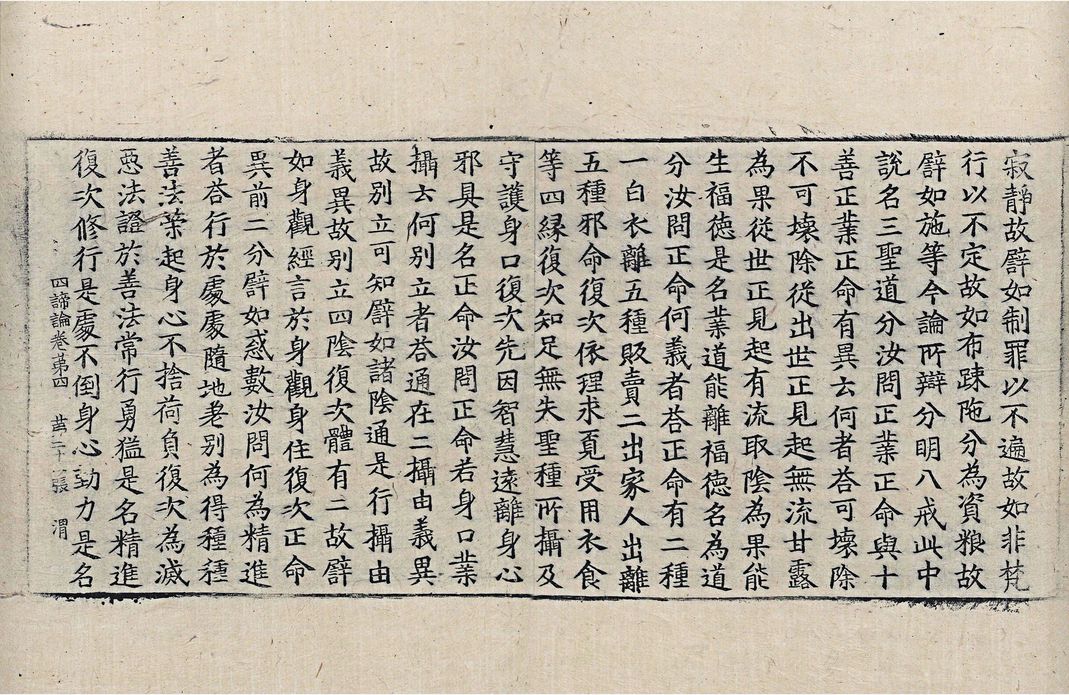 寂靜故譬如制罪以不遍故如非梵
行以不定故如布踈陁分為資粮故
譬如施等今論所辯分明八戒此中
說名三聖道分汝問正業正命與十
善正業正命有異云何者荅可壞除
不可壞除從出世正見起無流甘露
為果從世正見起有流取陰為果能
生福德是名業道能離福德名為道
分汝問正命何義者荅正命有二種
一白衣離五種販賣二出家人出離
五種邪命復次依理求覓受用衣食
等四緣復次知足無失聖種所攝及
守護身口復次先因智慧遠離身心
邪具是名正命汝問正命若身口業
攝云何別立者荅通在二攝由義異
故別立可知譬如諸陰通是行攝由
義異故別立四陰復次體有二故譬
如身觀經言於身觀身住復次正命
異前二分譬如惑數汝問何為精進
者荅行於處處隨地差別為得種種
善法築起身心不捨荷負復次為滅
惡法證於善法常行勇猛是名精進
復次修行是處不倒身心勤力是名
四諦論卷苐四 二十一張 渭